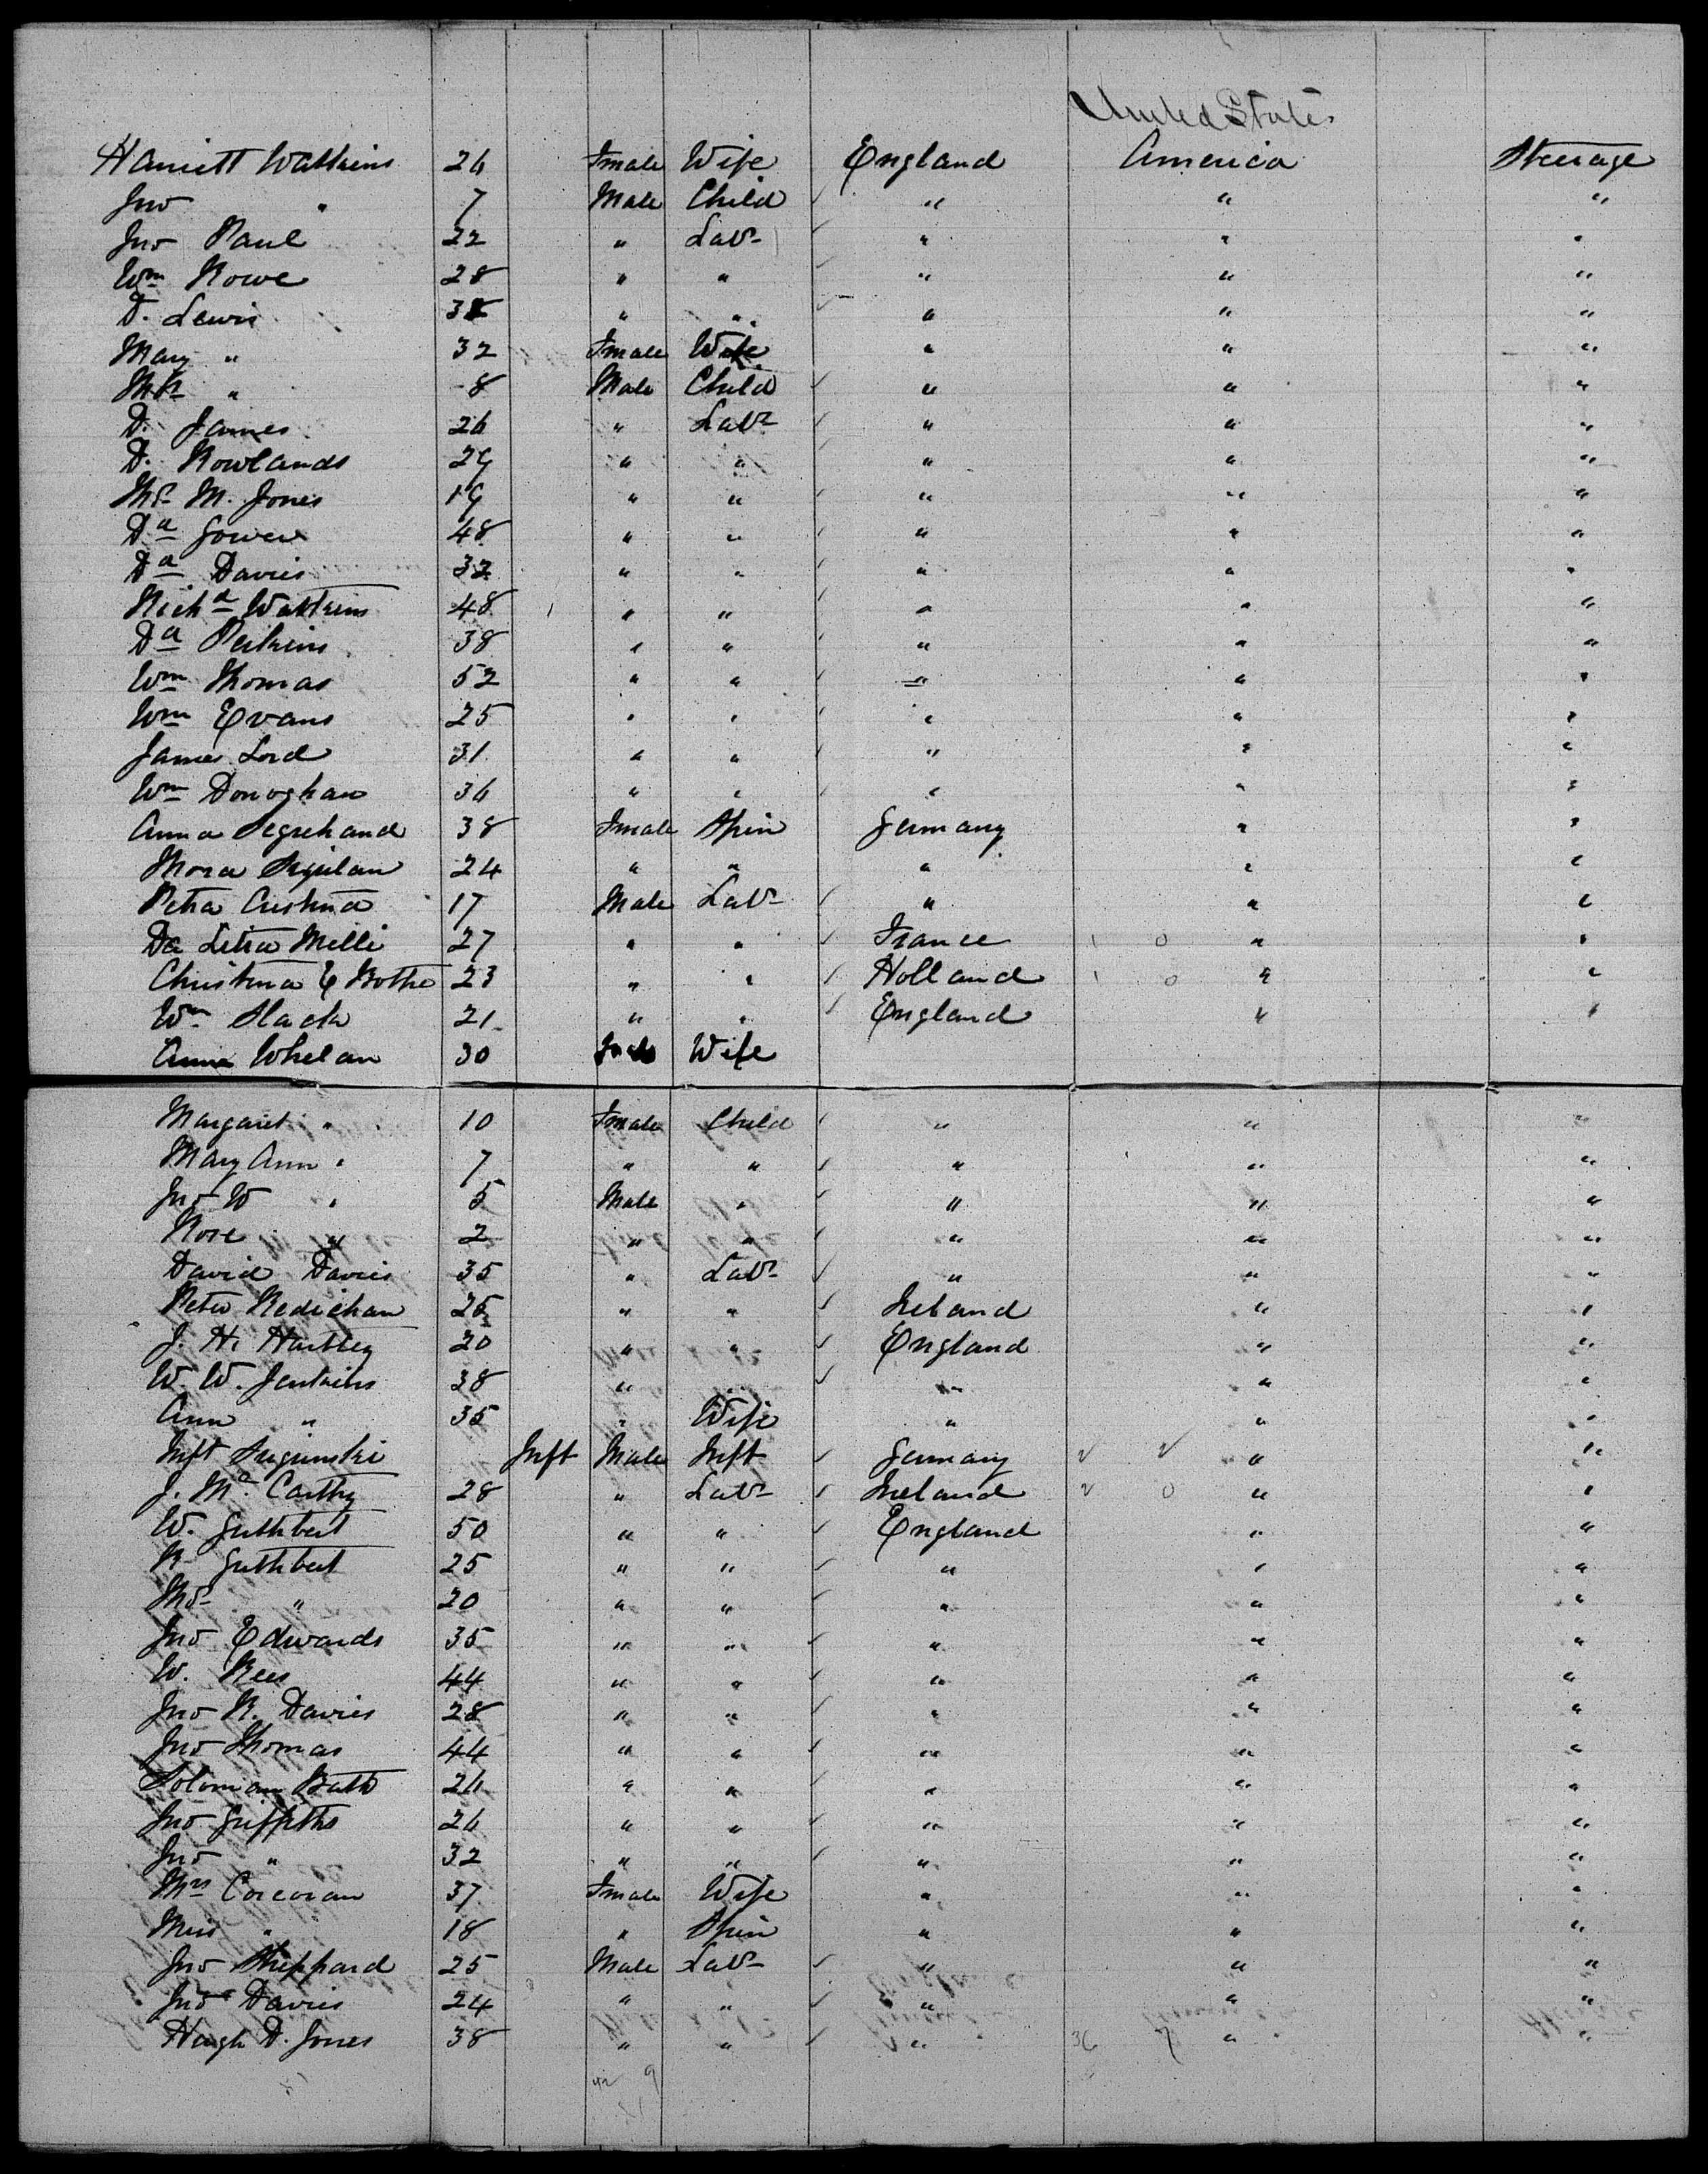 United States
Harriett Watkins 26 Fmale Wife England America Steerage
Jno " 7 Male Child " " "
Jno Paul 22 " Labr " " "
Wm Rowe 28 " " " " "
D. Lewis 38 " " " " "
Mary " 32 Fmale Wife " " "
" 8 Male Child " " "
D. James 26 " Labr " " "
D. Rowlands 29 " " " " "
Ths M. Jones 19 " " " " "
Da Gower 48 " " " " "
Da Davies 32 " " " " "
Richd Watkins 48 " " " " "
Da Perkins 38 " " " " "
Wm Thomas 52 " " " " "
Wm Evans 25 " " " " "
James Lord 31 " " " " "
Wm Donoghan 36 " " " " "
Anna 38 Fmale Spin Germany " "
24 " " " " "
Petra 17 Male Labr " " "
27 " " France " "
Christina E Bothe 23 " " Holland " "
Wm Slack 21 " " England " "
Anna Whelan 30 Wife
Margaret " 10 Fmale Child " " "
Mary Ann " 7 " " " " "
Jno W " 5 Male " " " "
Rose " 2 " " " " "
David Davies 35 " Labr " " "
Peter Redichan 25 " " Ireland " "
J. H. Hartley 20 " " England " "
W. W. Jenkins 38 " " " " "
Ann " 35 " Wife " " "
Inft Inft Male Inft Germany " "
J. Mc Carthy 28 " Labr Ireland " "
W. Guthbert 50 " " England " "
R Guthbert 25 " " " " "
Ths " 20 " " " " "
Jno Edwards 35 " " " " "
W. Rees 44 " " " " "
Jno R. Davies 28 " " " " "
Jno Thomas 44 " " " " "
Soloman Bath 26 " " " " "
Jno Griffiths 26 " " " " "
Jno " 32 " " " " "
Mrs Corcoran 37 Fmale Wife " " "
Miss " 18 " Spin " " "
Jno Sheppard 25 Male Labr " " "
Jno Davies 24 " " " " "
Hugh D. Jones 38 " " " 36 7 " "
42 9